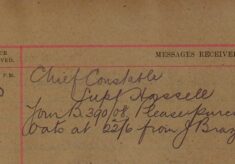 MESSAGES RECEIVED
P.M.
Chief Constable
Supt Hassell
Your B.390/08. Please purc
Oats at 22/6 from J Braz